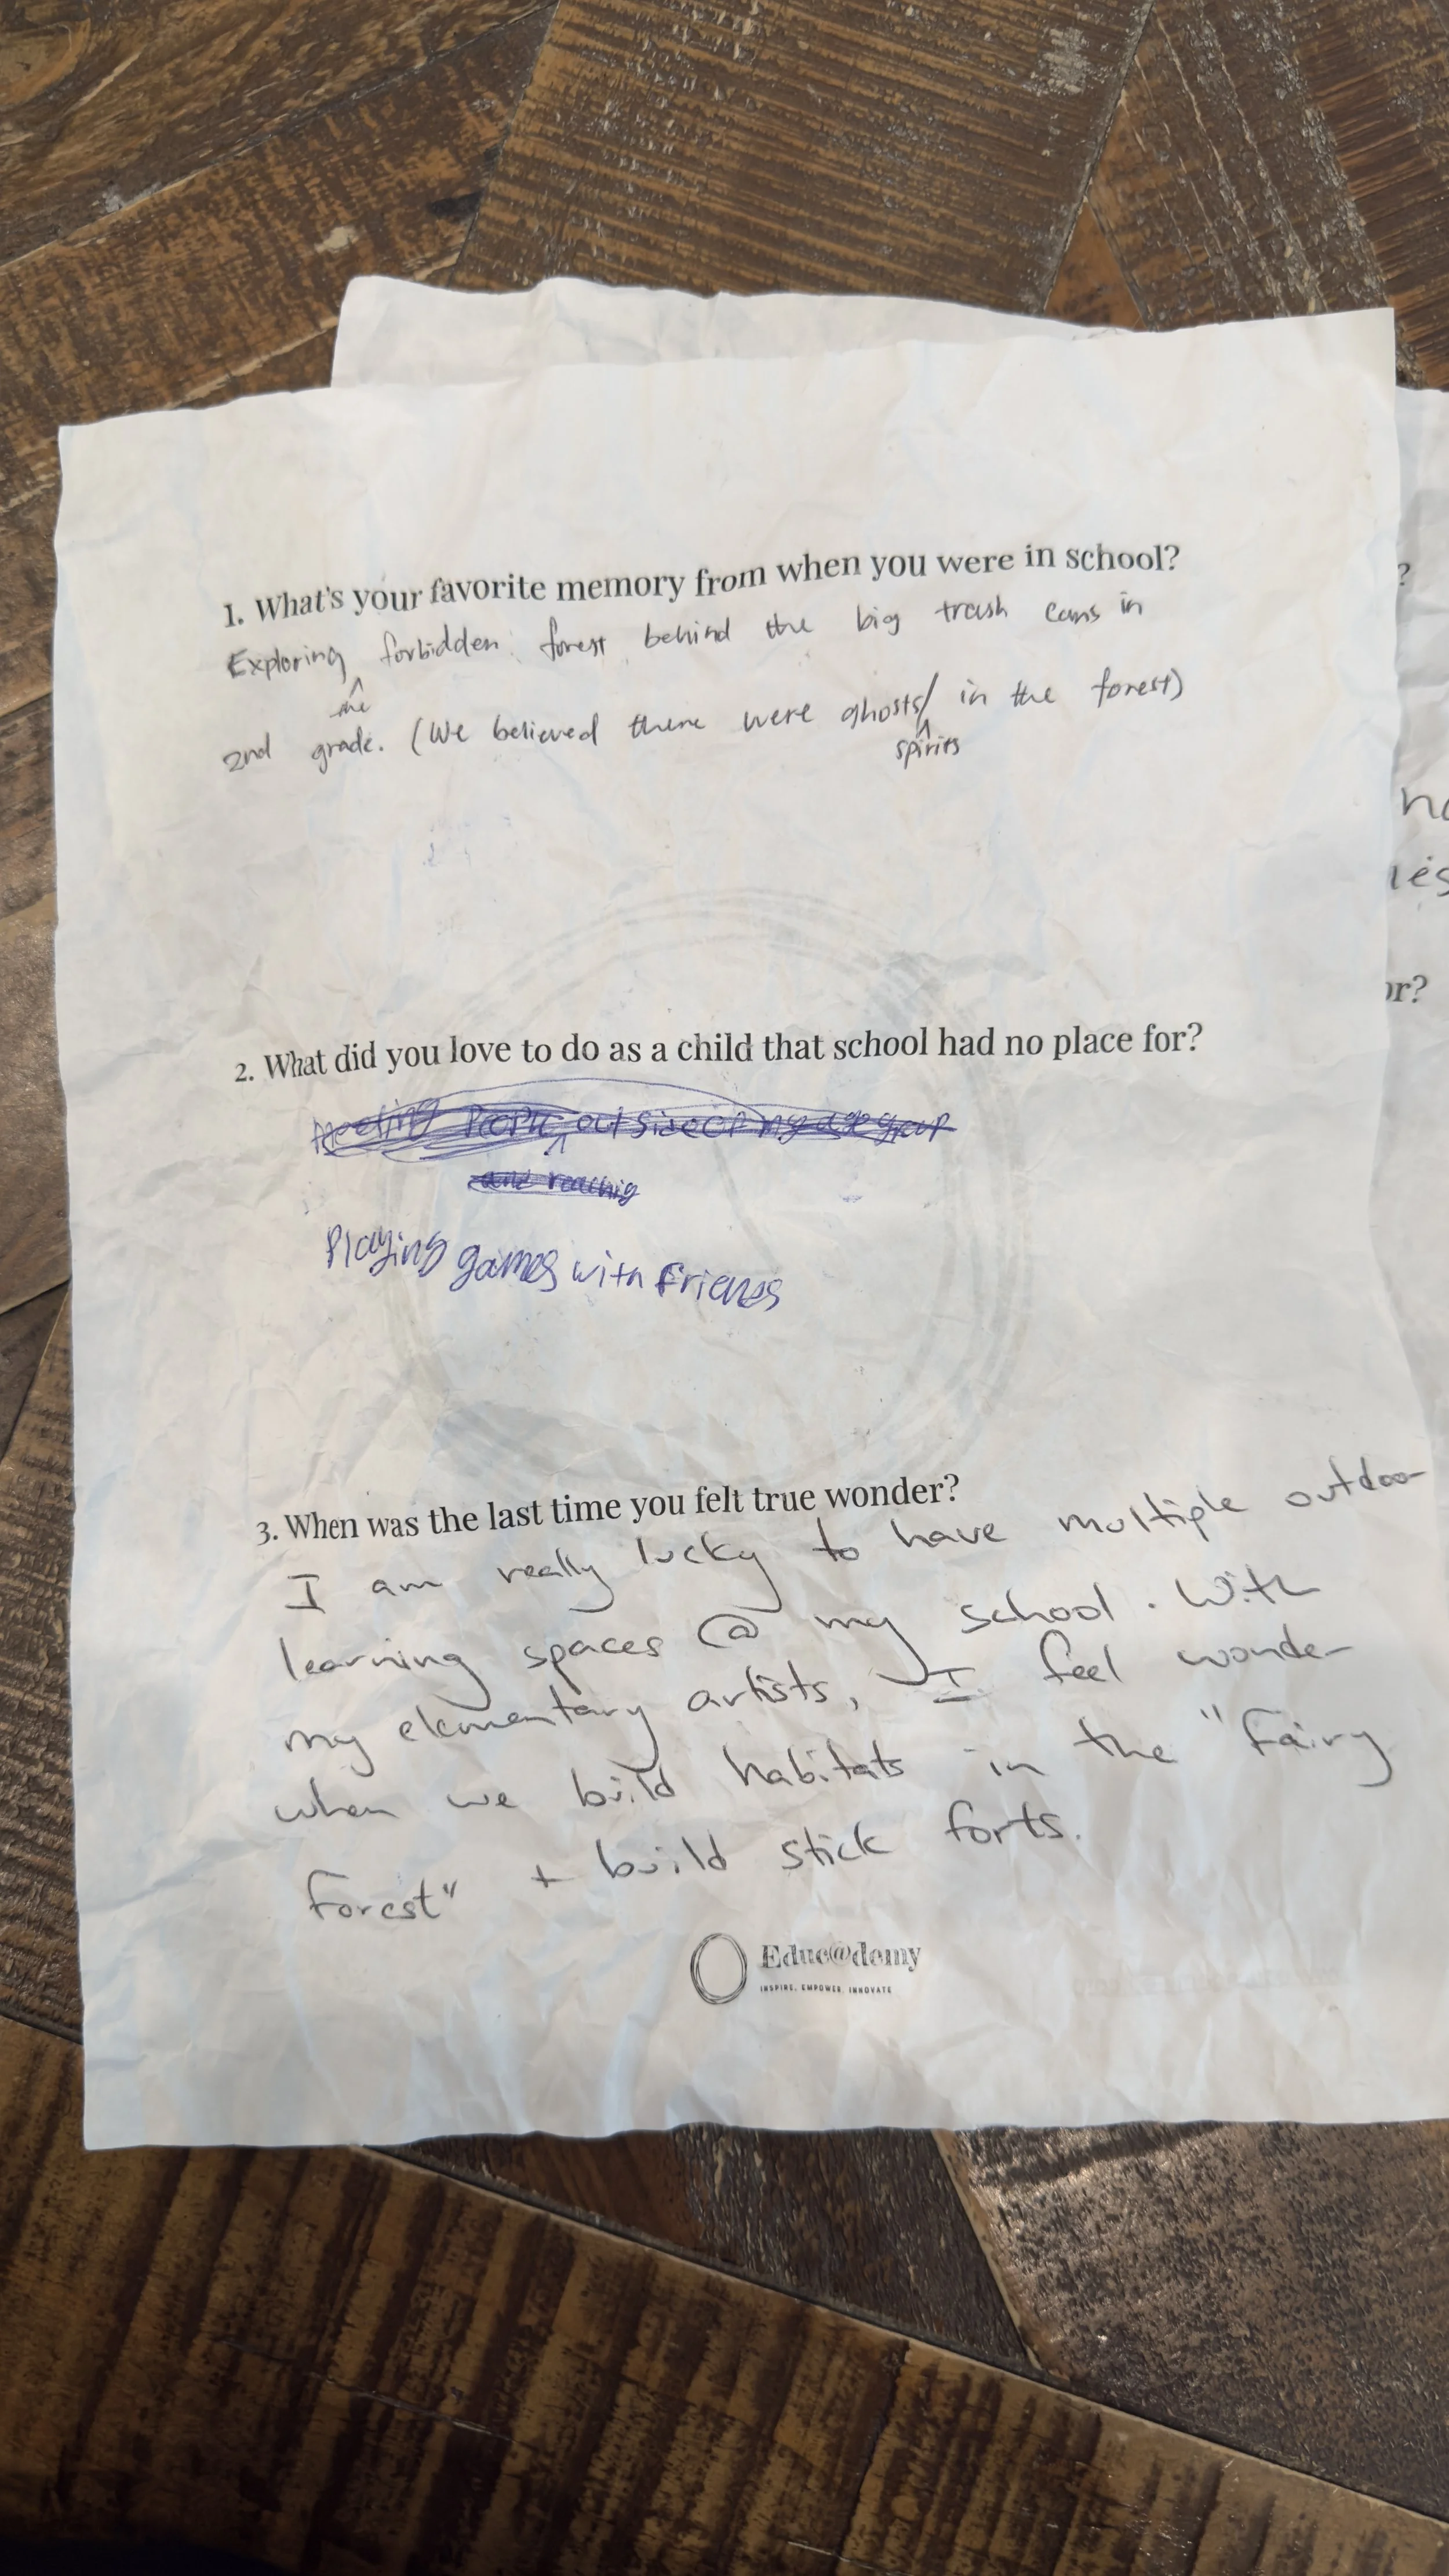 1. What's your favorite memory from when you were in school?
Exploring the forbidden forest behind the big trash cans in
2nd grade. (We believed there were ghosts/spirits in the forest)
2. What did you love to do as a child that school had no place for?
Meeting People outside of my age group
and reaching
Playing games with Friends
3. When was the last time you felt true wonder?
I am really lucky to have multiple outdoor
learning spaces @ my school. With
my elementary artists, I feel wonder
when we build habitats in the "Fairy
Forest" + build stick forts.
Educ@demy
INSPIRE. EMPOWER. INNOVATE
?
or?